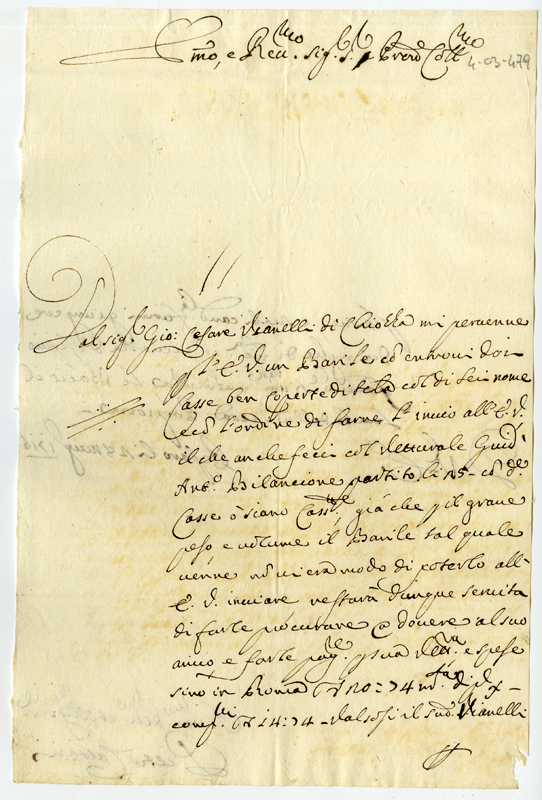 Emo, e Revmo. sig.r S.r e Prõn Collmo
4-03-479
Dal sig.r Gio: Cesare Vianelli di Chiozza mi pervenne
p V. E. un Barile cõ entrovi doi
Casse ben Coperte di tela col di Lei nome
e cõ l'ordine di farne l'invio all'E. V.
il che anche feci col Vetturale Guid'
Ant.o Bilancione partito li 25- cõ d.e
Casse ò siano Cass.te, già che p il grave
peso e volume il Barile tal quale
venne nõ vi era modo di poterlo all'
E. V. inviare restarà dunque servita
di farle procurare @ dovere al suo
arrivo e farle pag.re p sua Vett.ra e spese
sino in Roma 20:74 m.ta di p
14:74 - valsosi il sud.o Vianelli